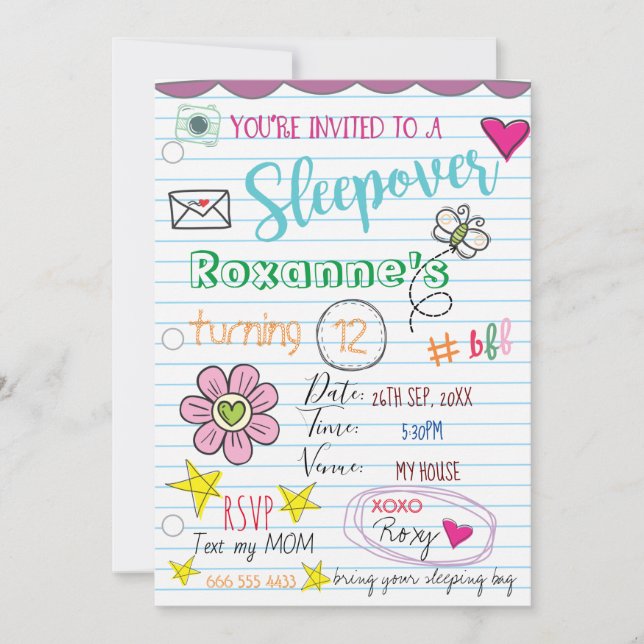 YOU'RE INVITED TO A
Sleepover
Roxanne's
turning 12
# bff
Date: 26TH SEP, 20XX
Time: 5:30PM
Venue: MY HOUSE
RSVP
Text my MOM
666 555 4433
XOXO
Roxy
bring your sleeping bag